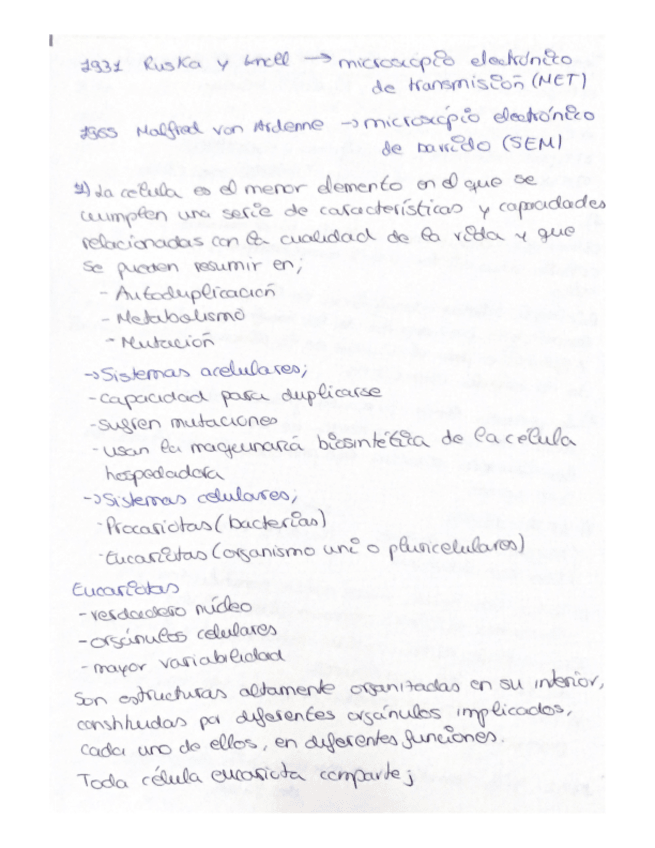 1931 Ruska y Knoll → microscopio electrónico
de transmisión (MET)
1965 Malfred von Ardenne → microscópio electrónico
de barrido (SEM)
1) La célula es el menor elemento en el que se
cumplen una serie de características y capacidades
relacionadas con la cualidad de la vida y que
se pueden resumir en;
- Autoduplicación
- Metabolismo
- Mutación
→ Sistemas acelulares;
- capacidad para duplicarse
- sufren mutaciones
- usan la maquinaria biosintética de la célula
hospedadora
→ Sistemas celulares;
- Procariotas (bacterias)
- Eucariotas (organismo uni o pluricelulares)
Eucariotas
- verdadero núcleo
- orgánulos celulares
- mayor variabilidad
Son estructuras altamente organizadas en su interior,
constituidas por diferentes orgánulos implicados,
cada uno de ellos, en diferentes funciones.
Toda célula eucariota comparte;